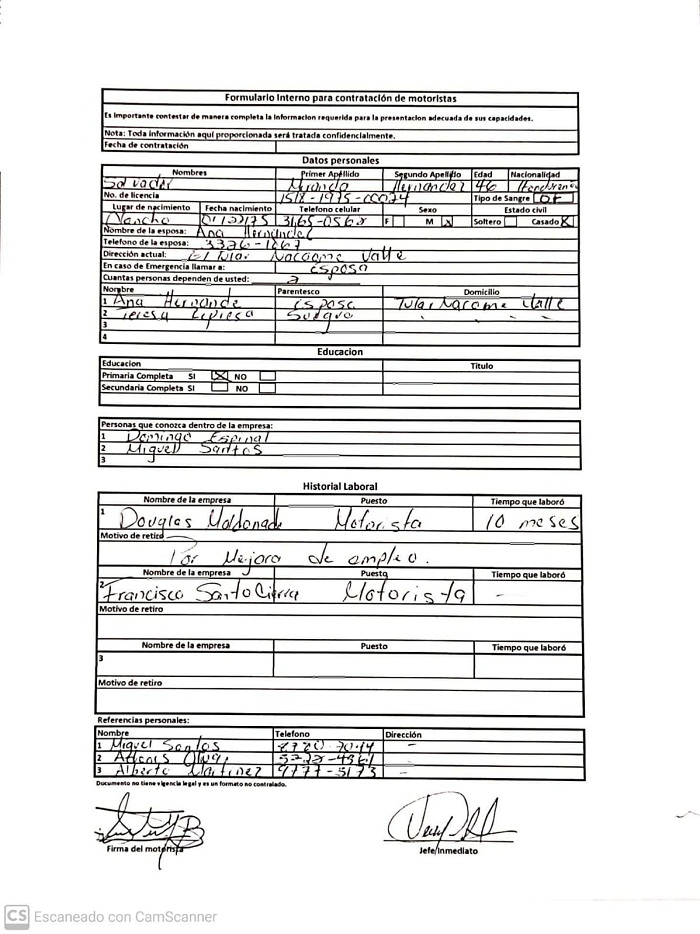 Formulario Interno para contratación de motoristas
Es importante contestar de manera completa la informacion requerida para la presentacion adecuada de sus capacidades.
Nota: Toda información aquí proporcionada será tratada confidencialmente.
Fecha de contratación
Datos personales
Nombres Primer Apellido Segundo Apellido Edad Nacionalidad
Salvador Miranda Hernandez 46
No. de licencia 1518-1975-00074 Tipo de Sangre
Lugar de nacimiento Fecha nacimiento Telefono celular Sexo Estado civil
3165-0562 F M X Soltero Casado X
Nombre de la esposa: Ana Hernandez
Telefono de la esposa: 3376-1267
Dirección actual: El Tular Nacaome Valle
En caso de Emergencia llamar a: esposa
Cuantas personas dependen de usted: 2
Nombre Parentesco Domicilio
1 Ana Hernande Esposa Tular Nacome Valle
2 Teresa Suegra
3
4
Educacion
Educacion Titulo
Primaria Completa SI X NO
Secundaria Completa SI NO
Personas que conozca dentro de la empresa:
1 Domingo Espinal
2 Miguel Santos
3
Historial Laboral
Nombre de la empresa Puesto Tiempo que laboró
1 Douglas Maldonado Motorista 10 meses
Motivo de retiro
Por Mejora de empleo.
Nombre de la empresa Puesto Tiempo que laboró
2 Francisco Santo Cierra Motorista -
Motivo de retiro
Nombre de la empresa Puesto Tiempo que laboró
3
Motivo de retiro
Referencias personales:
Nombre Telefono Dirección
1 Miguel Santos -
2 -
3 Alberto Martinez 9777-5173 -
Documento no tiene vigencia legal y es un formato no contralado.
Firma del motorista Jefe/Inmediato
CS Escaneado con CamScanner